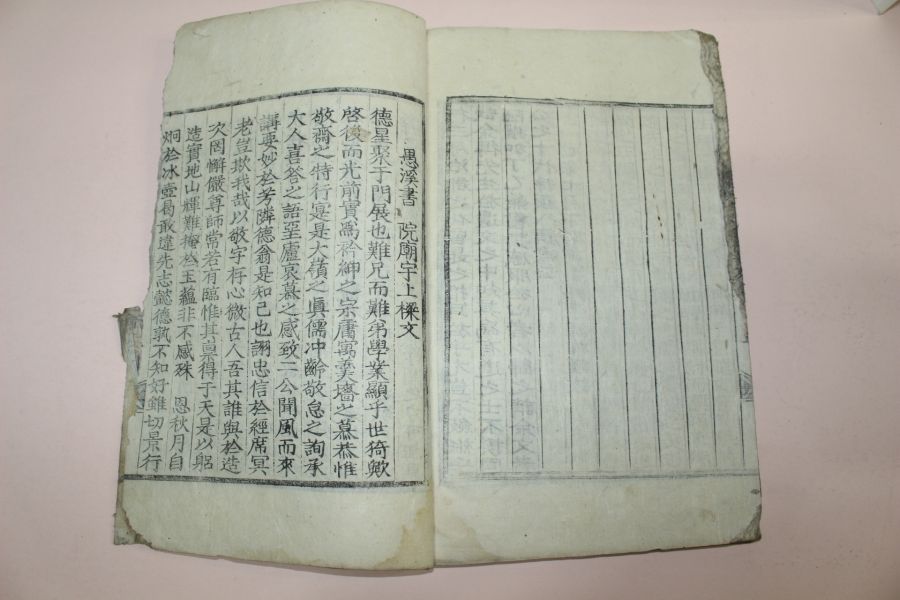 愚溪書院廟宇上樑文
德星聚于門展也難兄而難弟學業顯乎世猗歟
啓後而光前實爲衿紳之宗庸寓羹墻之慕恭惟
敬齋之特行寔是大嶺之眞儒冲齡敬怠之詢承
大人喜答之語堊廬哀慕之感致二公聞風而來
講要妙於芳隣德翁是知己也詡忠信於經席冥
老豈欺我哉以敬字存心微古人吾其誰與於造
次罔懈嚴尊師常若有臨惟其禀得于天是以躬
造實地山輝難掩於玉蘊非不感殊恩秋月自
炯於冰壺曷敢違先志懿德孰不知好錐切景行